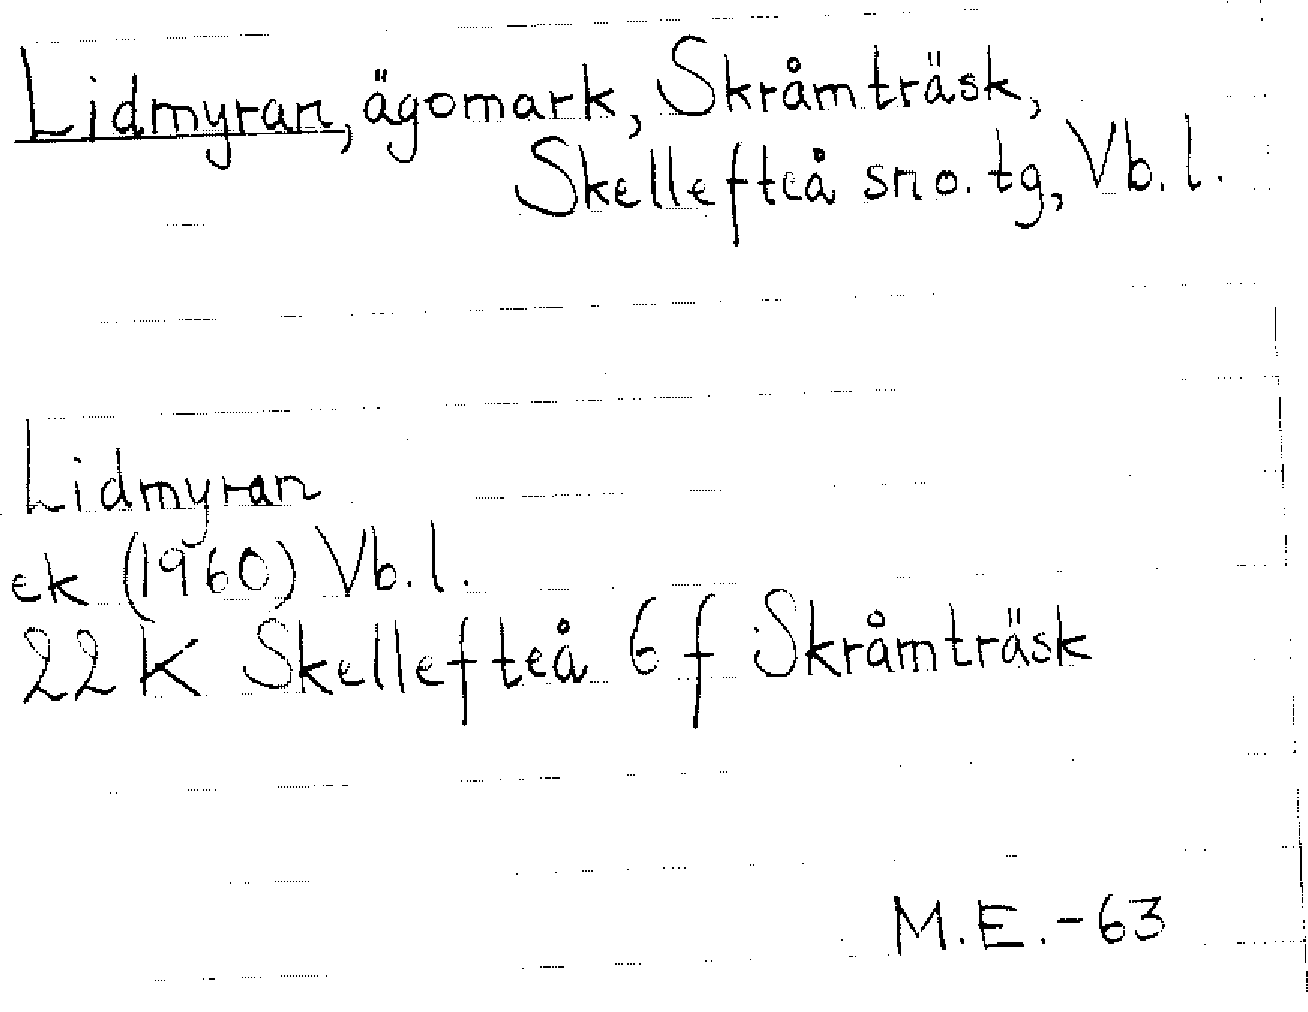 Lidmyran, ägomark, Skråmträsk,
Skellefteå sno. tg, Vb. l.
Lidmyran
ek (1960) Vb. l.
22 K Skellefteå 6 f Skråmträsk
M.E. - 63